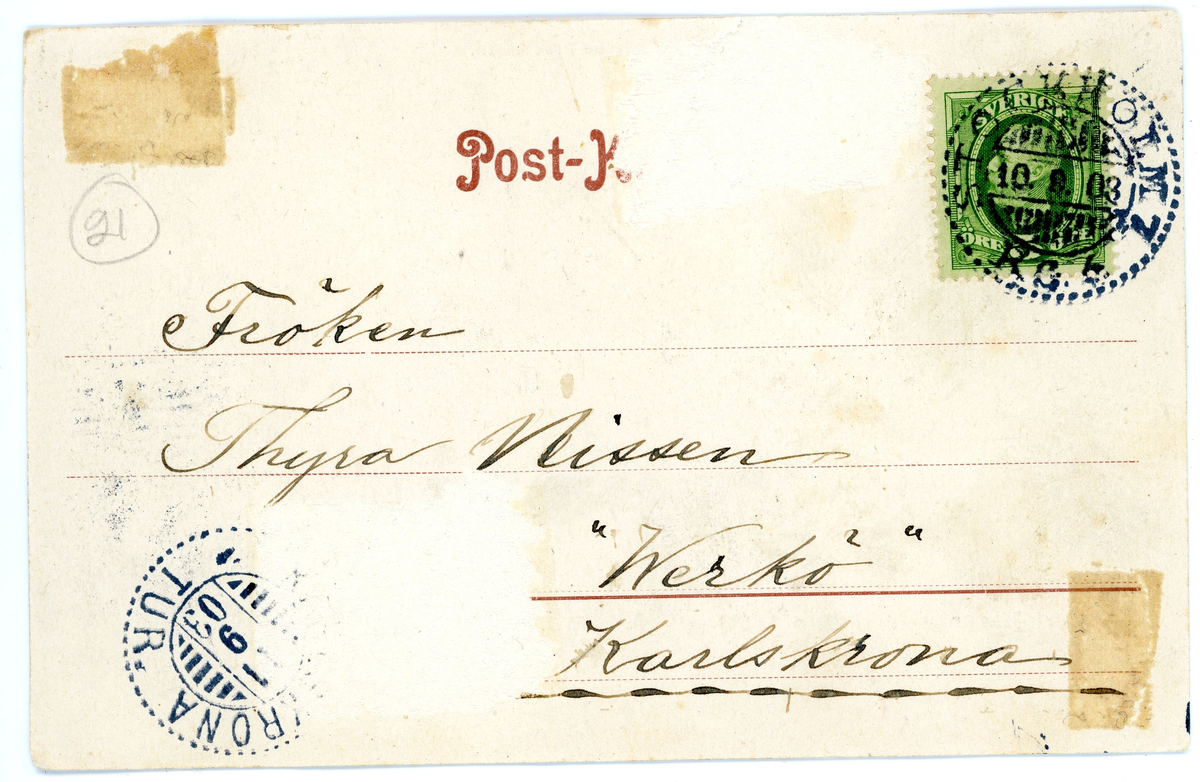 Post-K
SVERIGE
ÖRE
STOCKHOLM 7
10. 9. 03
21
Fröken
Thyra Nissen
"Werkö"
Karlskrona
RONA
TUR.
9
03